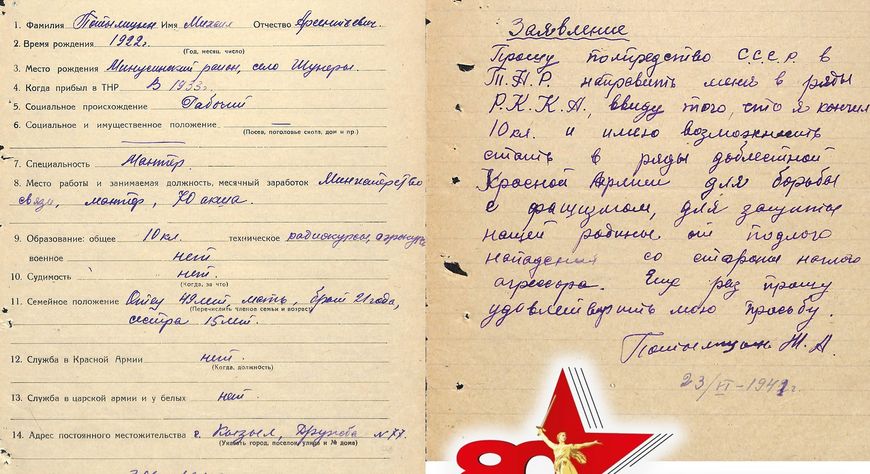 1. Фамилия Потылицын Имя Михаил Отчество Арсентьевич.
2. Время рождения 1922г.
(Год, месяц, число)
3. Место рождения Минусинский район, село Шунеры.
4. Когда прибыл в ТНР В 1933г.
5. Социальное происхождение Рабочий
6. Социальное и имущественное положение —
(Посев, поголовье скота, дом и пр.)
7. Специальность Монтер.
8. Место работы и занимаемая должность, месячный заработок Министерство
связи, монтер, 70 акша.
9. Образование: общее 10 кл. техническое радиокурсы,
военное нет
10. Судимость нет.
(Когда, за что)
11. Семейное положение Отец 49 лет, мать, брат 21 года,
(Перечислить членов семьи и возраст)
сестра 15 лет.
12. Служба в Красной Армии нет.
(Когда, должность)
13. Служба в царской армии и у белых нет
14. Адрес постоянного местожительства г. Кызыл, Дружба № 77
(Указать город, поселок, улица и № дома)
Заявление
Прошу полпредство С.С.С.Р. в
Т.Н.Р. направить меня в ряды
Р.К.К.А., ввиду того, что я кончил
10 кл. и имею возможность
стать в ряды доблестной
Красной Армии для борьбы
с фашизмом, для защиты
нашей родины от подлого
нападения со стороны наглого
агрессора. Еще раз прошу
удовлетворить мою просьбу.
Потылицын М. А.
23/VI-1941г.
80